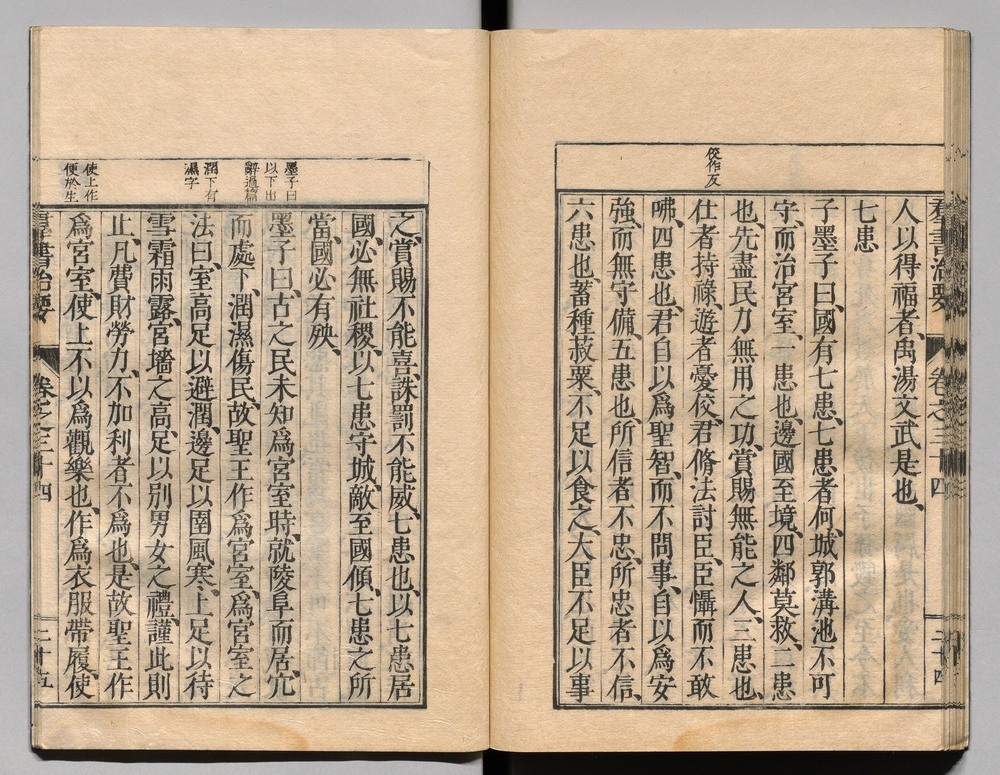 佼作友
羣書治要 卷之三十四 二十四
人以得福者、禹湯文武是也、
七患
子墨子曰、國有七患、七患者何、城郭溝池不可
守、而治宮室、一患也、邊國至境、四鄰莫救、二患
也、先盡民力無用之功、賞賜無能之人、三患也、
仕者持祿、遊者憂佼、君脩法討臣、臣懾而不敢
咈、四患也、君自以爲聖智、而不問事、自以爲安
強、而無守備、五患也、所信者不忠、所忠者不信、
六患也、蓄種菽粟、不足以食之、大臣不足以事
墨子曰
以下出
辭過篇
潤下有
濕字
使上作
便於生
之、賞賜不能喜、誅罰不能威、七患也、以七患居
國、必無社稷、以七患守城、敵至國傾、七患之所
當、國必有殃、
墨子曰、古之民未知爲宮室時、就陵阜而居、穴
而處下、潤濕傷民、故聖王作爲宮室、爲宮室之
法曰、室高足以避潤、邊足以圉風寒、上足以待
雪霜雨露、宮墻之高、足以別男女之禮、謹此則
止、凡費財勞力、不加利者不爲也、是故聖王作
爲宮室、使上不以爲觀樂也、作爲衣服帶履、使
羣書治要 卷之三十四 二十五